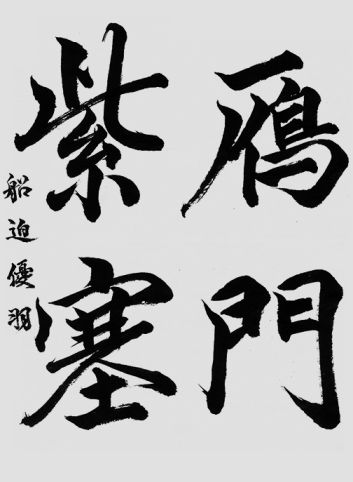 鴈門
紫塞
船迫優羽